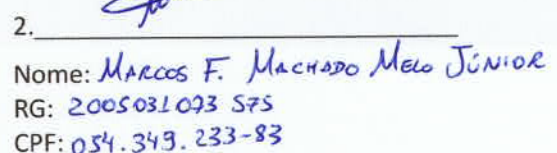 2.
Nome: MARCOS F. MACHADO MELO JÚNIOR
RG: 2005031073 575
CPF: 054.349.233-83